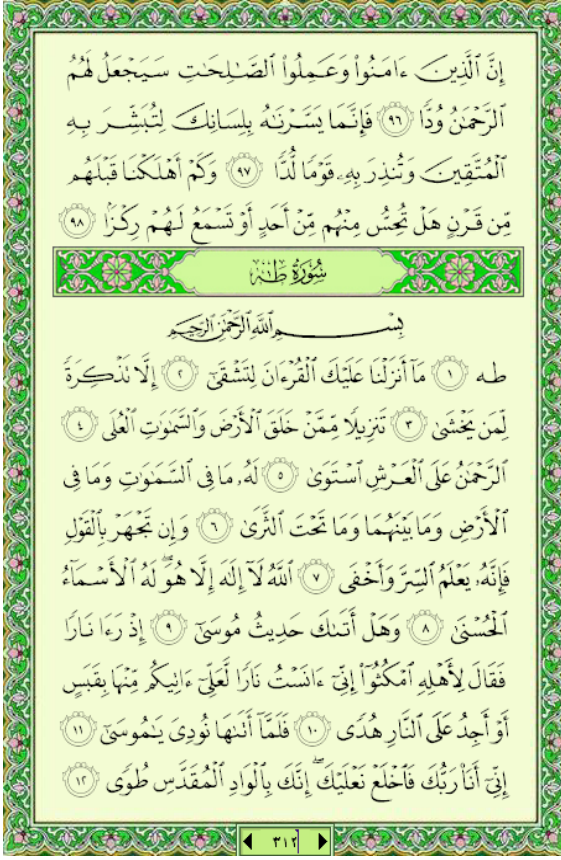 إِنَّ ٱلَّذِينَ ءَامَنُوا۟ وَعَمِلُوا۟ ٱلصَّٰلِحَٰتِ سَيَجْعَلُ لَهُمُ
ٱلرَّحْمَٰنُ وُدًّا ٩٦ فَإِنَّمَا يَسَّرْنَٰهُ بِلِسَانِكَ لِتُبَشِّرَ بِهِ
ٱلْمُتَّقِينَ وَتُنذِرَ بِهِۦ قَوْمًا لُّدًّا ٩٧ وَكَمْ أَهْلَكْنَا قَبْلَهُم
مِّن قَرْنٍ هَلْ تُحِسُّ مِنْهُم مِّنْ أَحَدٍ أَوْ تَسْمَعُ لَهُمْ رِكْزًۢا ٩٨
سُورَةُ طه
بِسْمِ ٱللَّهِ ٱلرَّحْمَٰنِ ٱلرَّحِيمِ
طه ١ مَآ أَنزَلْنَا عَلَيْكَ ٱلْقُرْءَانَ لِتَشْقَىٰٓ ٢ إِلَّا تَذْكِرَةً
لِّمَن يَخْشَىٰ ٣ تَنزِيلًا مِّمَّنْ خَلَقَ ٱلْأَرْضَ وَٱلسَّمَٰوَٰتِ ٱلْعُلَى ٤
ٱلرَّحْمَٰنُ عَلَى ٱلْعَرْشِ ٱسْتَوَىٰ ٥ لَهُۥ مَا فِى ٱلسَّمَٰوَٰتِ وَمَا فِى
ٱلْأَرْضِ وَمَا بَيْنَهُمَا وَمَا تَحْتَ ٱلثَّرَىٰ ٦ وَإِن تَجْهَرْ بِٱلْقَوْلِ
فَإِنَّهُۥ يَعْلَمُ ٱلسِّرَّ وَأَخْفَى ٧ ٱللَّهُ لَآ إِلَٰهَ إِلَّا هُوَ ۖ لَهُ ٱلْأَسْمَآءُ
ٱلْحُسْنَىٰ ٨ وَهَلْ أَتَىٰكَ حَدِيثُ مُوسَىٰٓ ٩ إِذْ رَءَا نَارًا
فَقَالَ لِأَهْلِهِ ٱمْكُثُوٓا۟ إِنِّىٓ ءَانَسْتُ نَارًا لَّعَلِّىٓ ءَاتِيكُم مِّنْهَا بِقَبَسٍ
أَوْ أَجِدُ عَلَى ٱلنَّارِ هُدًى ١٠ فَلَمَّآ أَتَىٰهَا نُودِىَ يَٰمُوسَىٰٓ ١١
إِنِّىٓ أَنَا۠ رَبُّكَ فَٱخْلَعْ نَعْلَيْكَ ۖ إِنَّكَ بِٱلْوَادِ ٱلْمُقَدَّسِ طُوًى ١٢
٣١٢